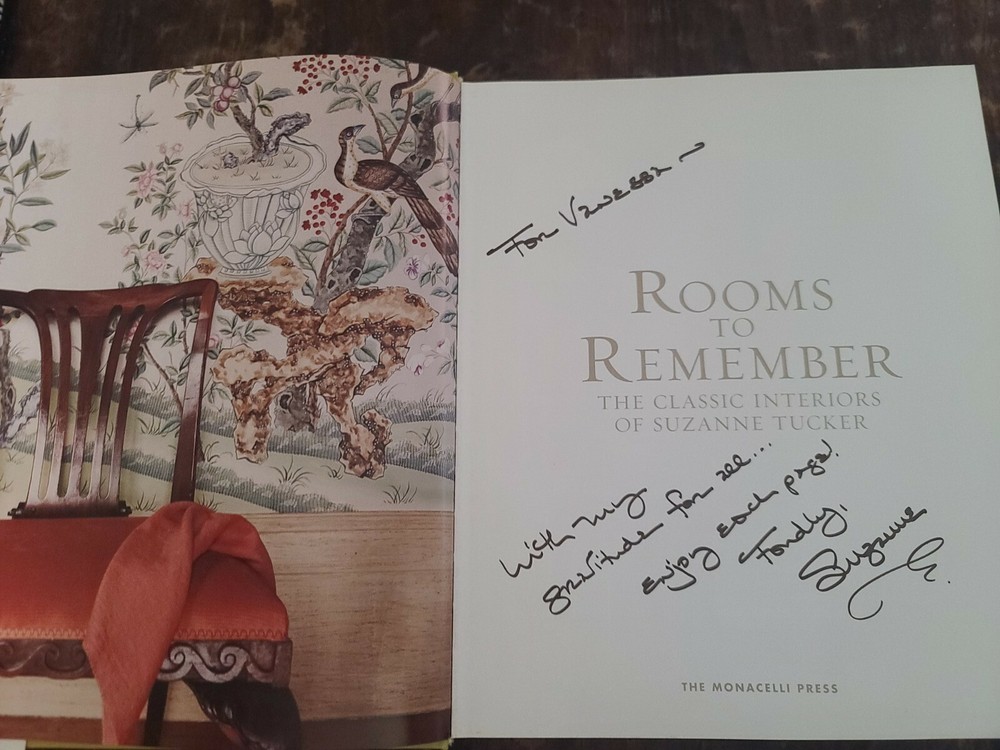 For Vanessa ~
ROOMS
TO
REMEMBER
THE CLASSIC INTERIORS
OF SUZANNE TUCKER
With my
gratitude for all...
Enjoy each page!
Fondly,
Suzanne
THE MONACELLI PRESS